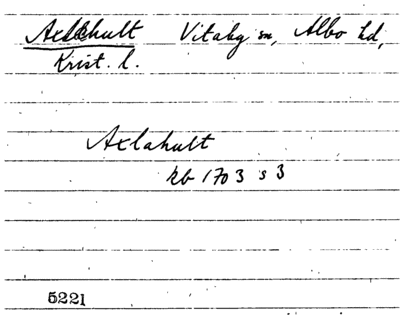 Axlahult Vitaby sn, Albo hd,
Krist. l.
Axlahult
kb 1703 s 3
5221